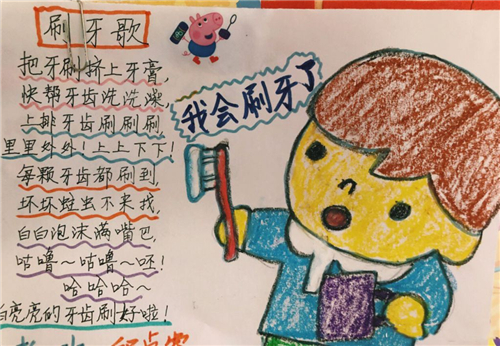 刷牙歌
把牙刷挤上牙膏,
快帮牙齿洗洗澡,
上排牙齿刷刷刷,
里里外外!上上下下!
每颗牙齿都刷到,
坏坏蛀虫不来找,
白白泡沫满嘴巴,
咕噜~咕噜~呸!
哈哈哈~
白亮亮的牙齿刷好啦!
我会刷牙了